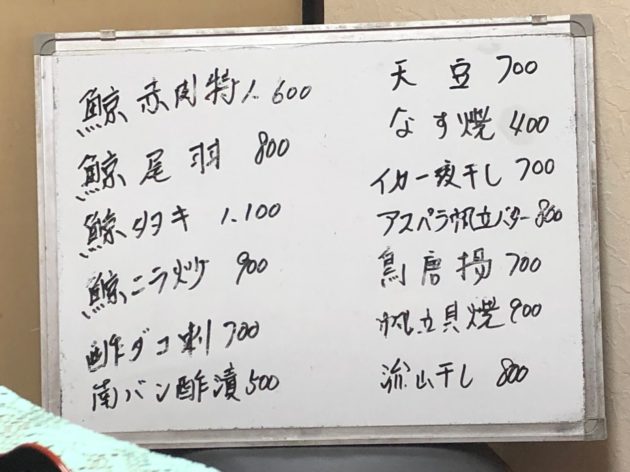 鯨赤肉特1.600
鯨尾羽 800
鯨タタキ 1.100
鯨ニラ炒 900
酢ダコ刺 700
南バン酢漬 500
天豆 700
なす焼 400
イカ一夜干し 700
アスパラ帆立バター 800
鳥唐揚 700
帆立貝焼 900
干し 800